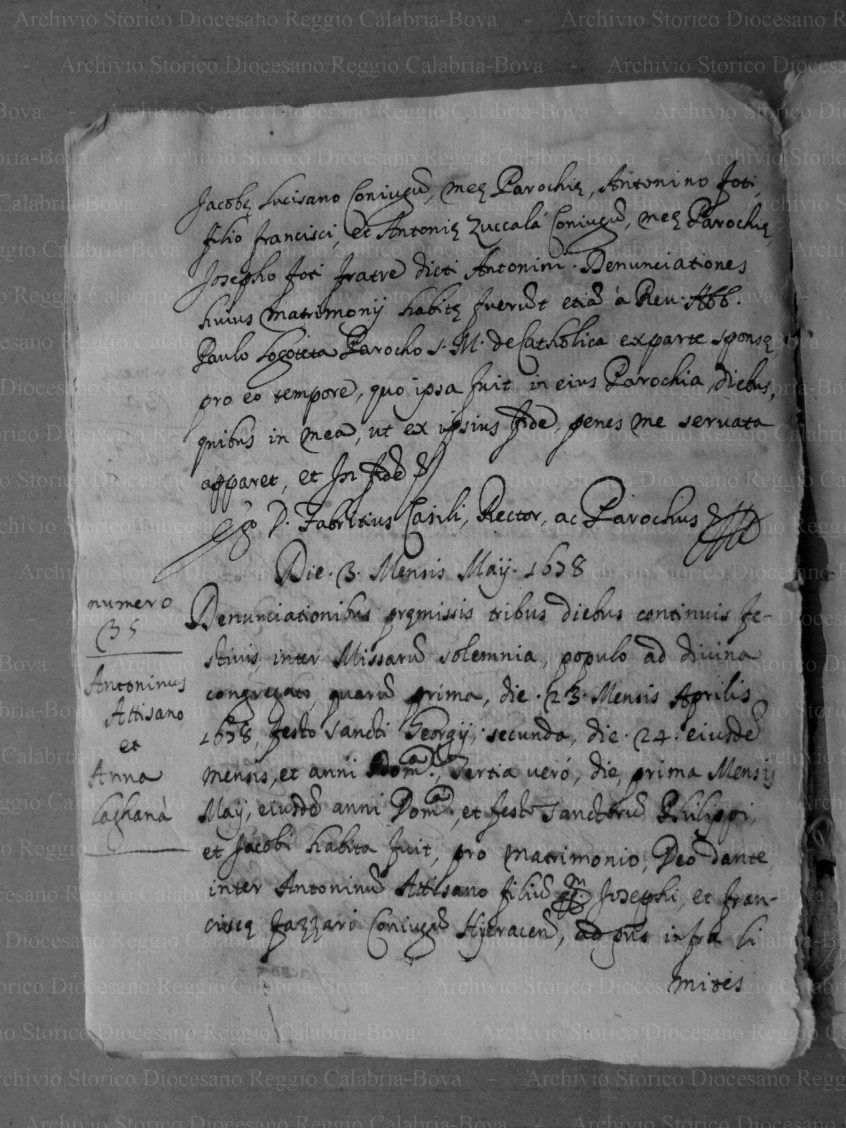 Jacobę Lucisano Coniugũ, meę Parochię, Antonino Foti,
filio Francisci, et Antonię Zuccalà Coniugũ, meę Parochię,
Josepho Foti fratre dicti Antonini. Denunciationes
huius matrimonij habitę fuerũt etiã à Reu. Abb.
Paulo Logoteta Parocho S. M. de Catholica ex parte sponsę
pro eo tempore, quo ipsa fuit in eius Parochia, diebus,
quibus in mea, ut ex ipsius fide, penes me seruata
apparet, et In fidẽ
D. Fabritius Casili, Rector, ac Parochus
Die. 3. Mensis Maij. 1678
numero
35
Antoninus
Attisano
et
Anna
Laganà
Denunciationibus pręmissis tribus diebus continuis fe-
stiuis, inter Missarũ solemnia, populo ad diuina
congregato, quarũ prima, die. 23. Mensis Aprilis
1678, festo Sancti Georgij, secunda, die. 24. eiusdẽ
mensis, et anni Dom., Tertia uerò, die prima Mensis
Maij, eiusdẽ anni Dom., et festo Sanctorũ Philippi,
et Jacobi habita fuit, pro matrimonio, Deo dante,
inter Antoninũ Attisano filiũ Josephi, et Fran-
ciscę Fazzari Coniugũ, ad infra li
mites